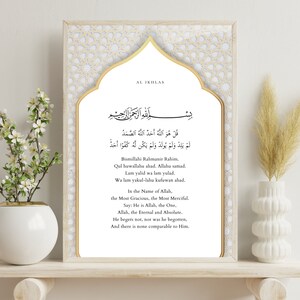 AL IKHLAS
بسم الله الرحمن الرحيم
قُلْ هُوَ اللَّهُ أَحَدٌ اللَّهُ الصَّمَدُ
لَمْ يَلِدْ وَلَمْ يُولَدْ وَلَمْ يَكُن لَّهُ كُفُوًا أَحَدٌ
Bismillahi Rahmanir Rahim,
Qul huwallahu ahad. Allahu samad.
Lam yalid wa lam yulad.
Wa lam yakul-lahu kufuwan ahad.
In the Name of Allah,
the Most Gracious, the Most Merciful.
Say: He is Allah, the One,
Allah, the Eternal and Absolute.
He begets not, nor was he begotten,
And there is none comparable to Him.